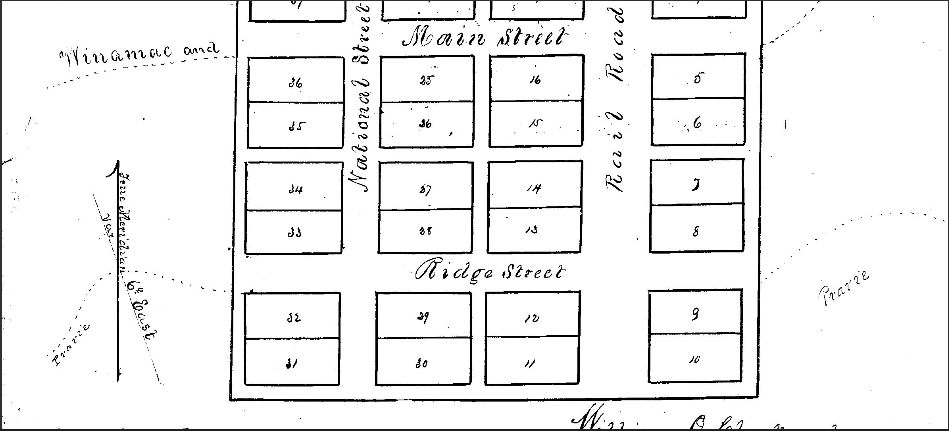 Main Street
Winamac and
National Street
Rail Road
36 25 16 5
35 26 15 6
34 27 14 7
33 28 13 8
True Meridian
Var 6° East
Ridge Street
Prarie
Prarie
32 29 12 9
31 30 11 10